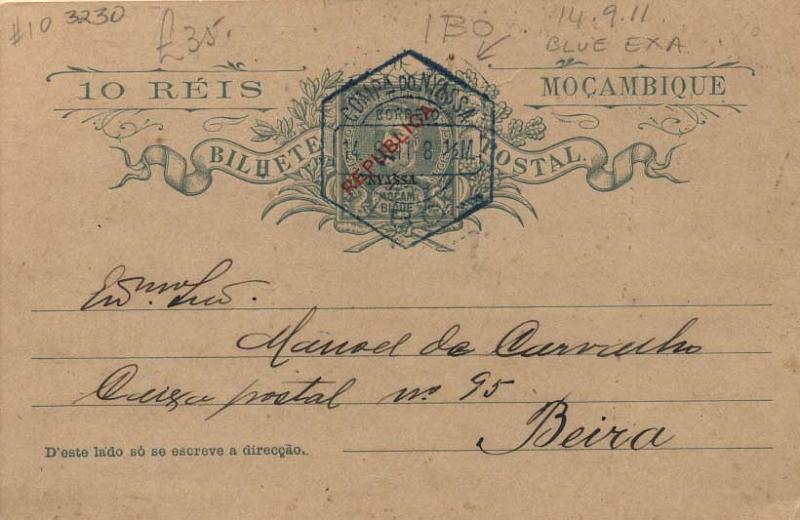 #10 3230
£35.
IBO
14.9.11
BLUE EXA
10 RÉIS
MOÇAMBIQUE
BILHETE POSTAL.
COMPA DO NYASSA
CORREIO
14 11 8 ½M
REPUBLICA
NYASSA
MOÇAM
BIQUE
Exmo. Snr.
Manoel de Carvalho
Caixa postal no 95
Beira
D'este lado só se escreve a direcção.